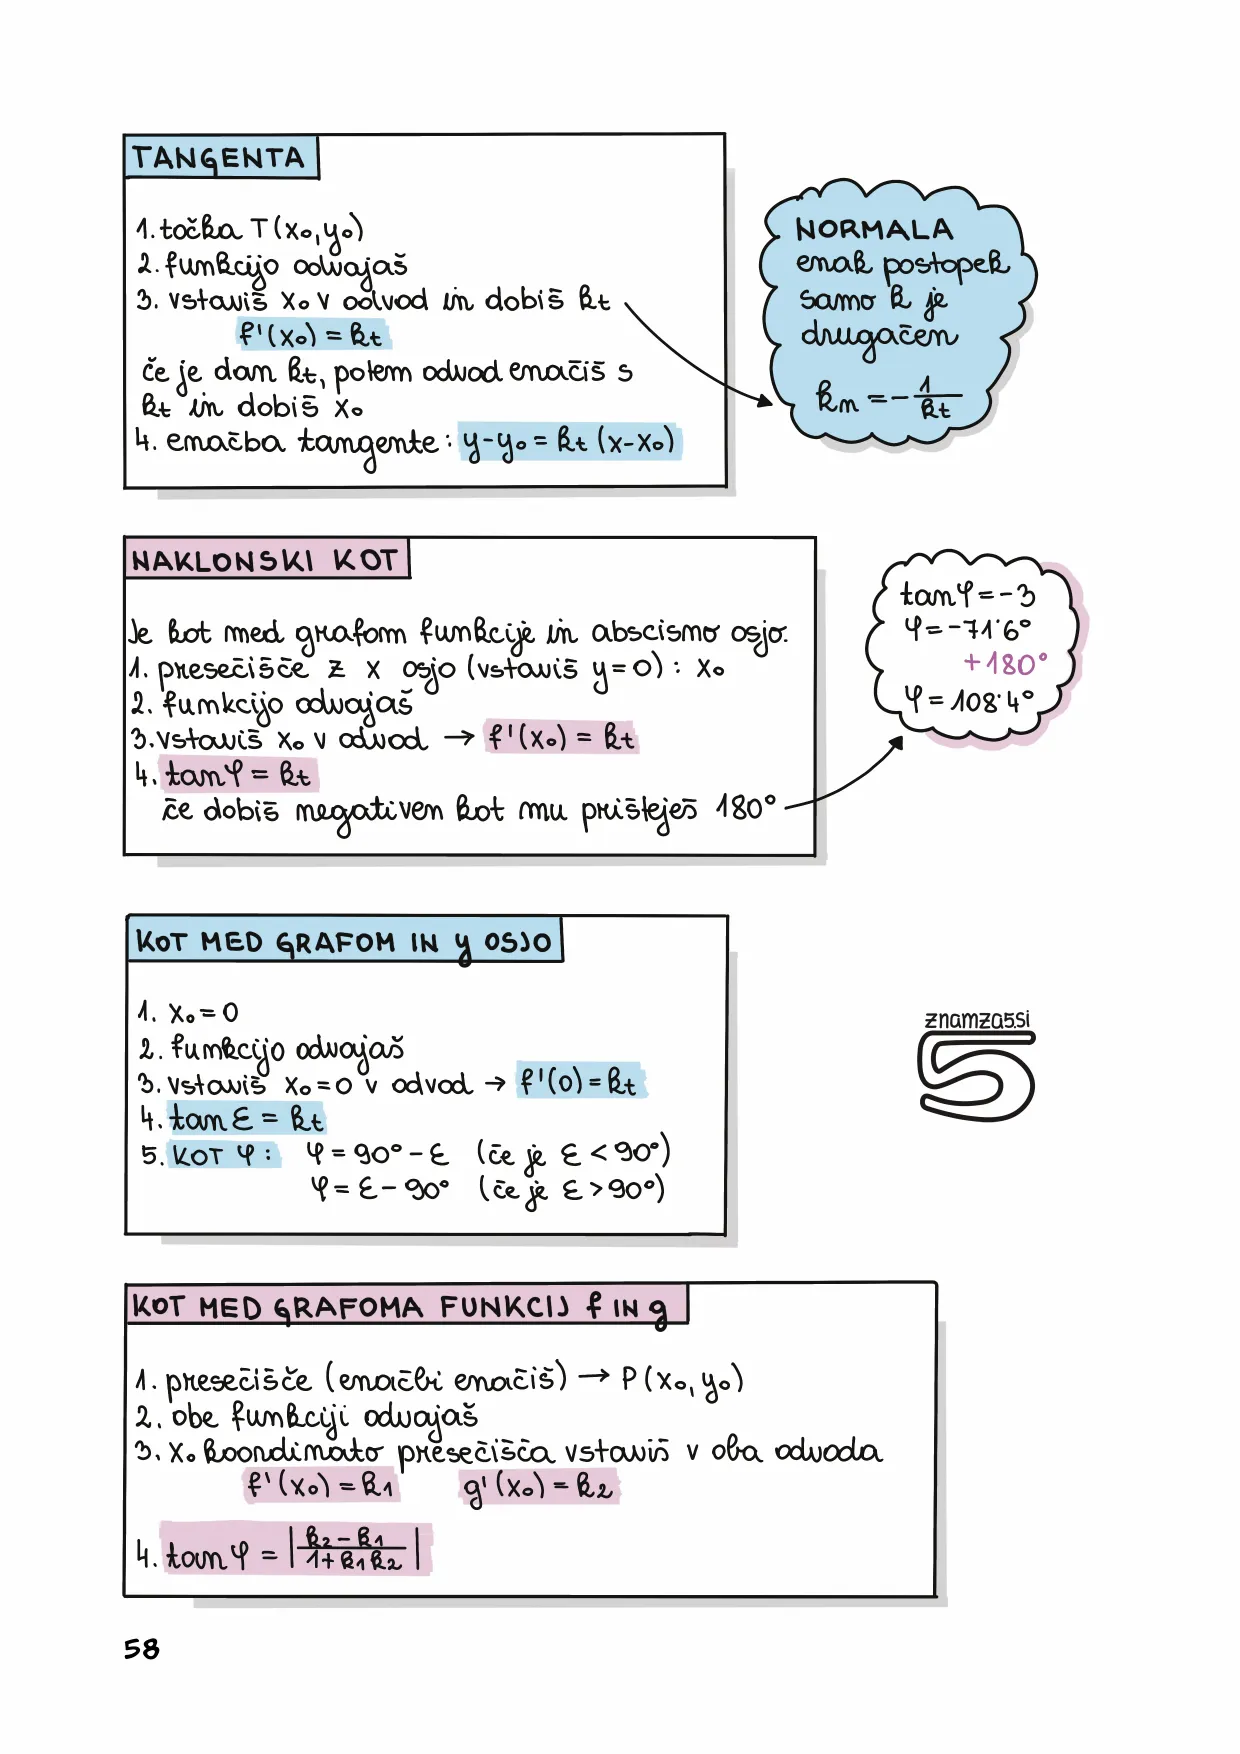 TANGENTA
1. točka T(x₀,y₀)
2. funkcijo odvajaš
3. vstaviš x₀ v odvod in dobiš kt
f'(x₀) = kt
če je dan kt, potem odvod enačiš s
kt in dobiš x₀
4. enačba tangente: y-y₀ = kt (x-x₀)
NORMALA
enak postopek
samo k je
drugačen
kn = - 1/kt
NAKLONSKI KOT
Je kot med grafom funkcije in abscisno osjo.
1. presečišče z x osjo (vstaviš y=0): x₀
2. funkcijo odvajaš
3. vstaviš x₀ v odvod → f'(x₀) = kt
4. tanφ = kt
če dobiš negativen kot mu prišteješ 180°
tanφ = -3
φ = -71˙6°
+180°
φ = 108˙4°
KOT MED GRAFOM IN y OSJO
1. x₀ = 0
2. funkcijo odvajaš
3. vstaviš x₀=0 v odvod → f'(0) = kt
4. tan ε = kt
5. KOT φ: φ = 90° - ε (če je ε < 90°)
φ = ε - 90° (če je ε > 90°)
znamza5.si
5
KOT MED GRAFOMA FUNKCIJ f IN g
1. presečišče (enačbi enačiš) → P(x₀, y₀)
2. obe funkciji odvajaš
3. x₀ koordinato presečišča vstaviš v oba odvoda
f'(x₀) = k₁ g'(x₀) = k₂
4. tanφ = | k₂ - k₁ / 1 + k₁k₂ |
58